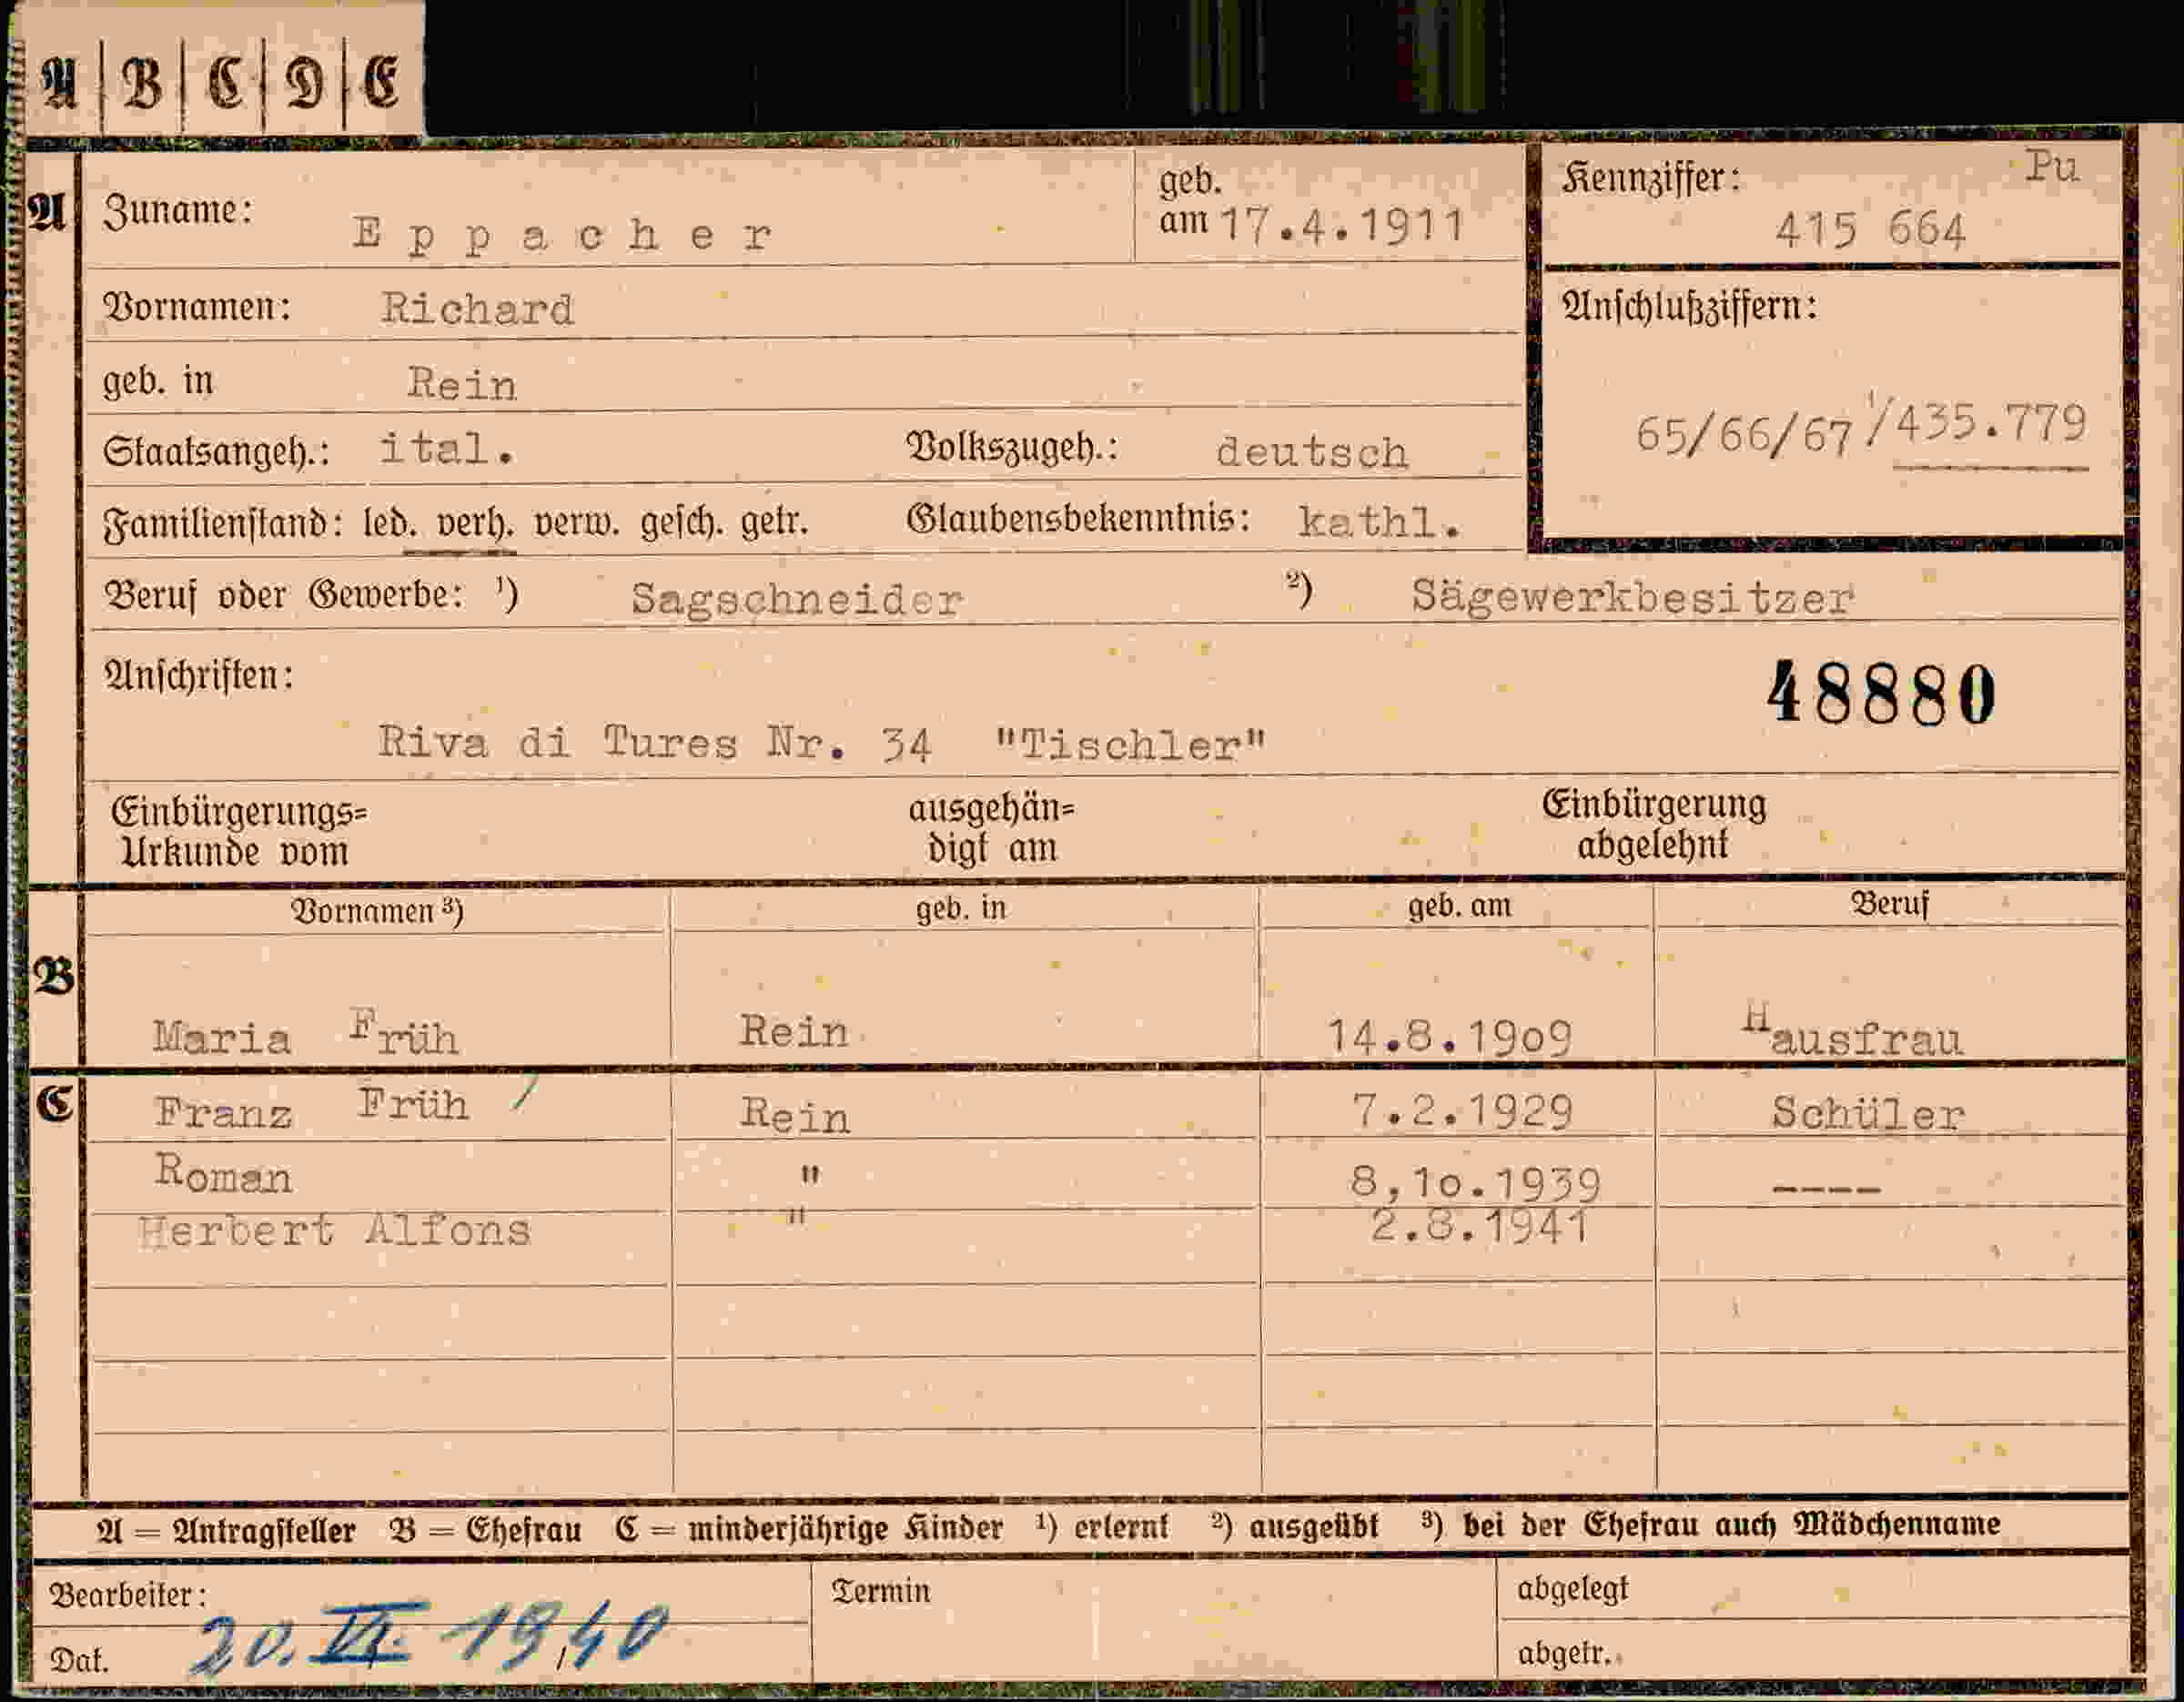 A | B | C | D | E
A Zuname: Eppacher geb. am 17.4.1911 Kennziffer: Pu
415 664
Vornamen: Richard Anschlußziffern:
geb. in Rein
65/66/67 1/435.779
Staatsangeh.: ital. Volkszugeh.: deutsch
Familienstand: led. verh. verw. gesch. getr. Glaubensbekenntnis: kathl.
Beruf oder Gewerbe: ¹) Sagschneider ²) Sägewerkbesitzer
Anschriften: 48880
Riva di Tures Nr. 34 "Tischler"
Einbürgerungs= ausgehän= Einbürgerung
Urkunde vom digt am abgelehnt
Vornamen ³) geb. in geb. am Beruf
B
Maria Früh Rein 14.8.19o9 Hausfrau
C Franz Früh / Rein 7.2.1929 Schüler
Roman " 8,1o.1939 ----
Herbert Alfons " 2.8.1941
A = Antragsteller B = Ehefrau C = minderjährige Kinder ¹) erlernt ²) ausgeübt ³) bei der Ehefrau auch Mädchenname
Bearbeiter: Termin abgelegt
Dat. 20. VI. 1940 abgetr.